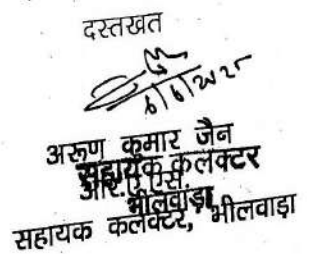 दस्तखत
6/6/2025
अरूण कुमार जैन
सहायक कलेक्टर
आर.ए.एस.
भीलवाड़ा
सहायक कलेक्टर, भीलवाड़ा